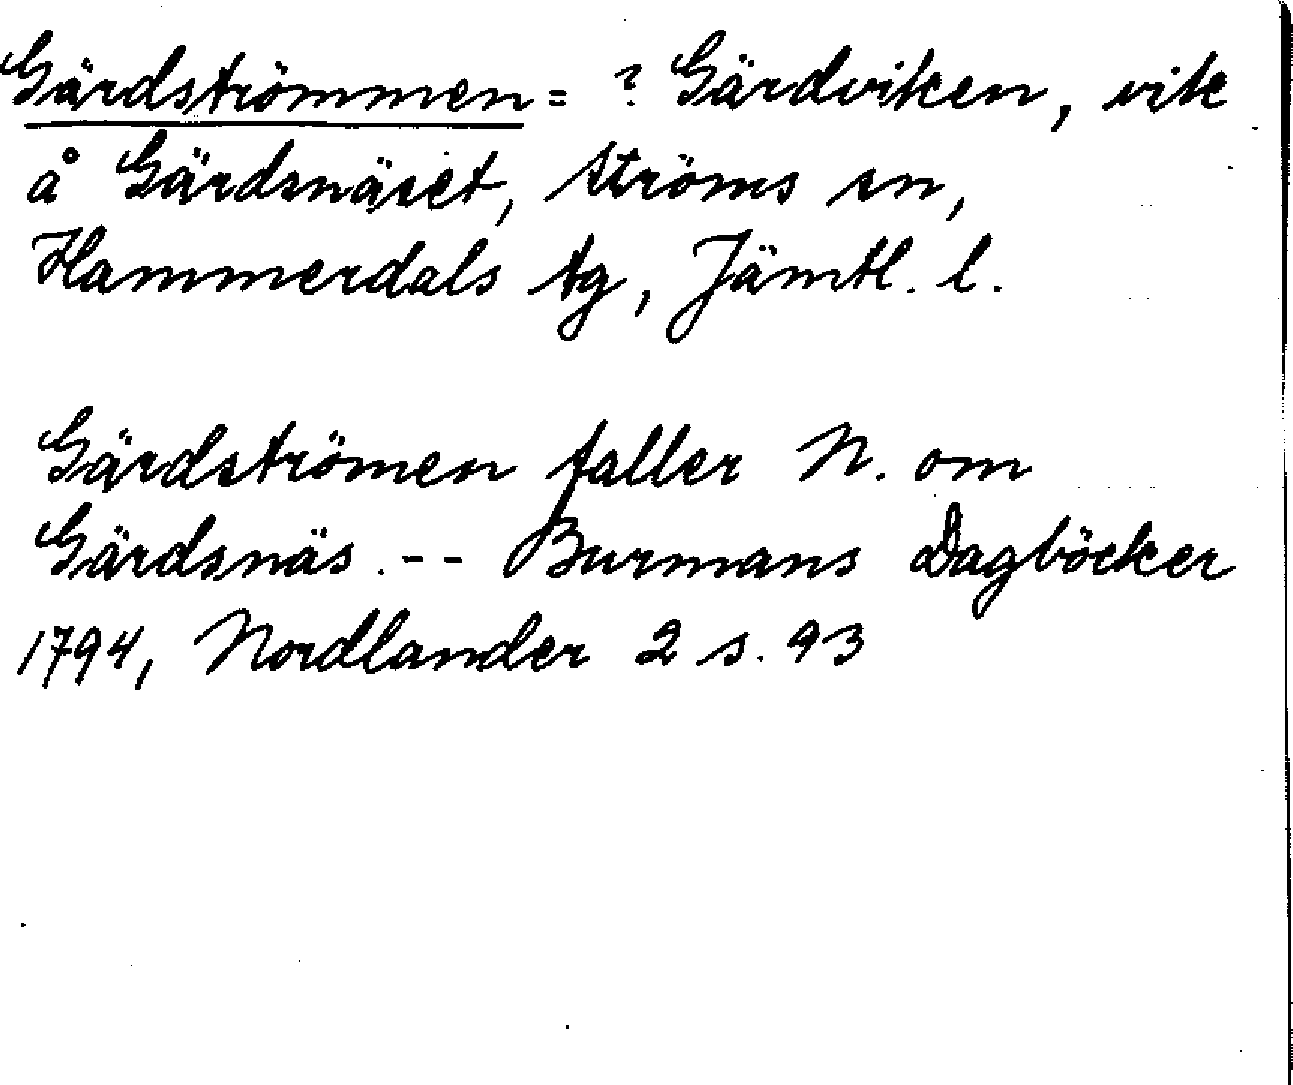 Gärdströmmen = ? Gärdviken, vik
å Gärdsnäset, Ströms sn,
Hammerdals tg, Jämtl. l.
Gärdströmen faller N. om
Gärdsnäs. -- Burmans Dagböcker
1794, Nordlander 2 s. 93